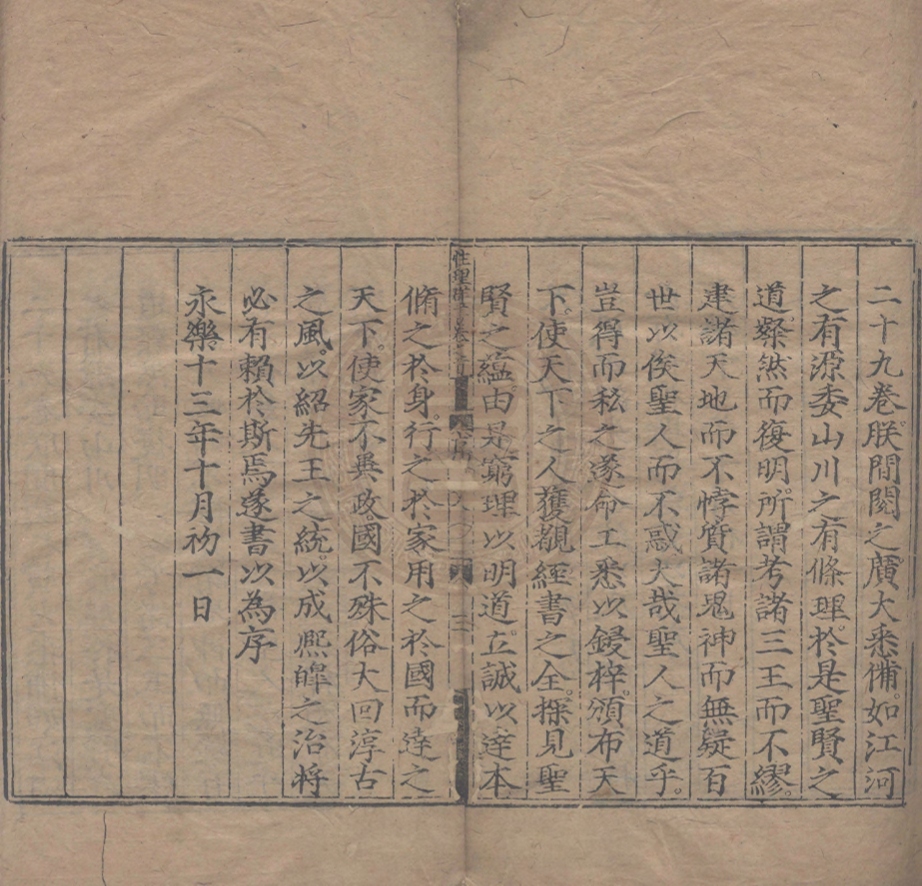 二十九卷。朕間閱之。廣大悉備。如江河
之有源委。山川之有條理。於是聖賢之
道。粲然而復明。所謂考諸三王而不繆。
建諸天地而不悖。質諸鬼神而無疑。百
世以俟聖人而不惑。大哉聖人之道乎。
豈得而私之。遂命工悉以鋟梓。頒布天
下。使天下之人獲覩經書之全。探見聖
賢之蘊。由是窮理以明道。立誠以達本。
脩之於身。行之於家。用之於國。而達之
天下。使家不異政。國不殊俗。大回淳古
之風。以紹先王之統。以成熙皥之治。將
必有賴於斯焉。遂書以為序
永樂十三年十月初一日
性理 卷之首
三